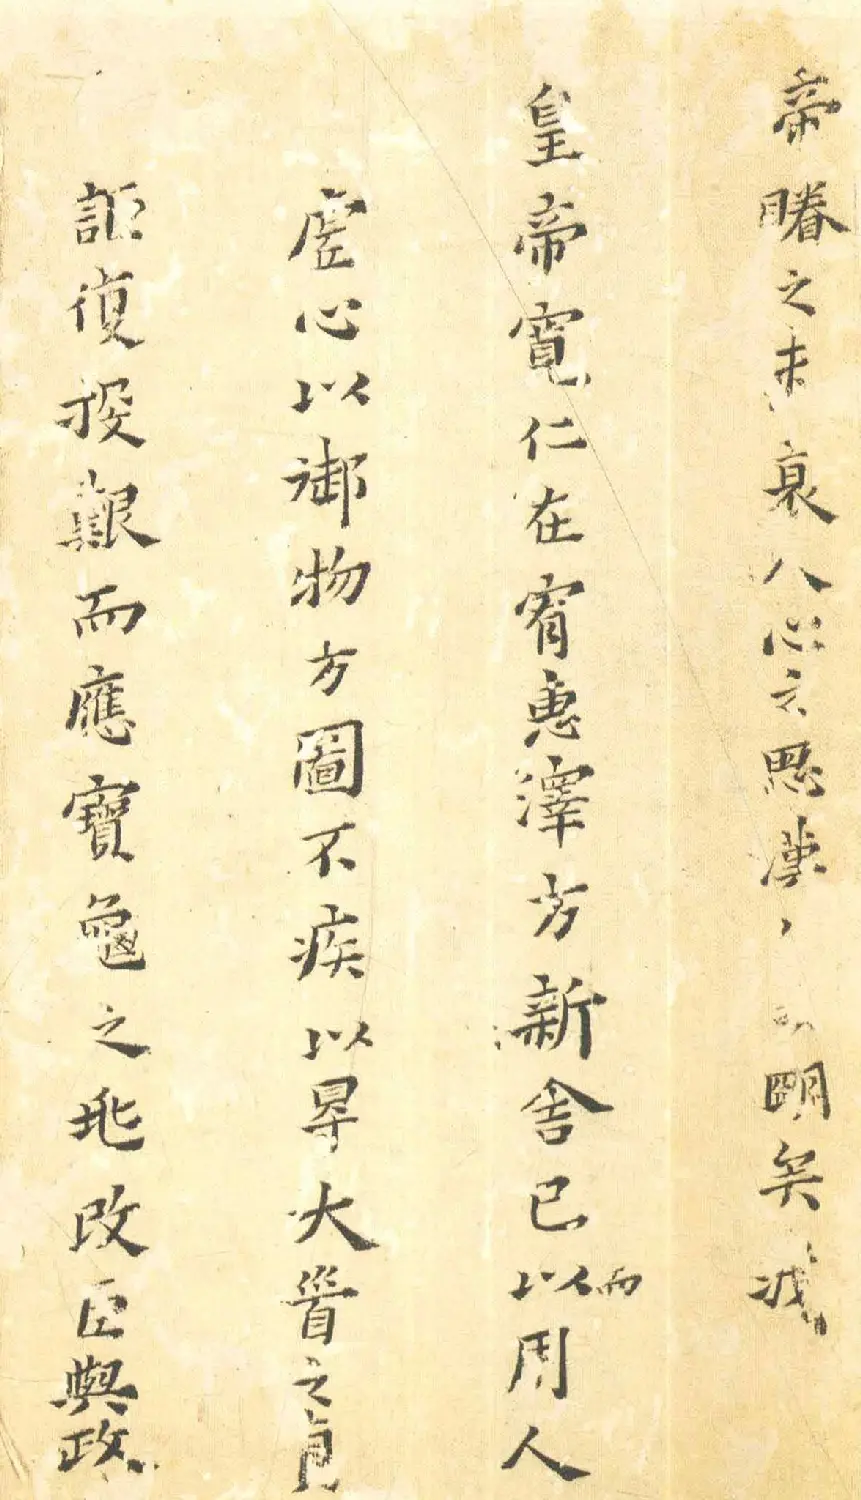 帝睠之未衰人心之思漢明矣
皇帝寬仁在宥惠澤方新舍己以而用人
虛心以御物方圖不疾以大晉之貞
詎復投艱而應寶龜之兆改臣與政